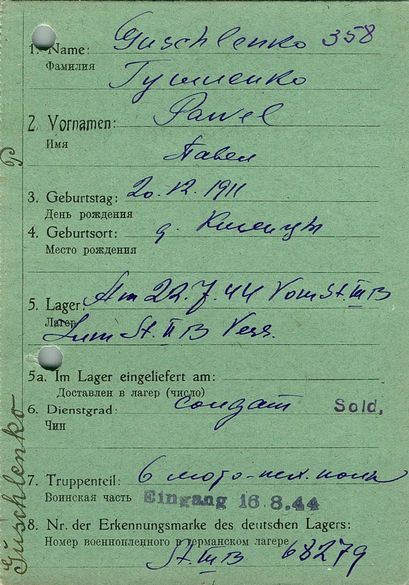 1. Name: Guschlenko 358
Фамилия Гушленко
2. Vornamen: Pawel
Имя Павел
3. Geburtstag: 20.12.1911
День рождения
4. Geburtsort: д.
Место рождения
5. Lager: Am 22.7.44 Vom St. III B
Лагерь
Zum St. II B Vers.
5a. Im Lager eingeliefert am:
Доставлен в лагер (число)
6. Dienstgrad: солдат Sold,
Чин
7. Truppenteil: 6 мото-пех. полк
Воинская часть Eingang 16.8.44
8. Nr. der Erkennungsmarke des deutschen Lagers:
Номер военнопленного в германском лагере
St. III B 68279
Guschlenko P